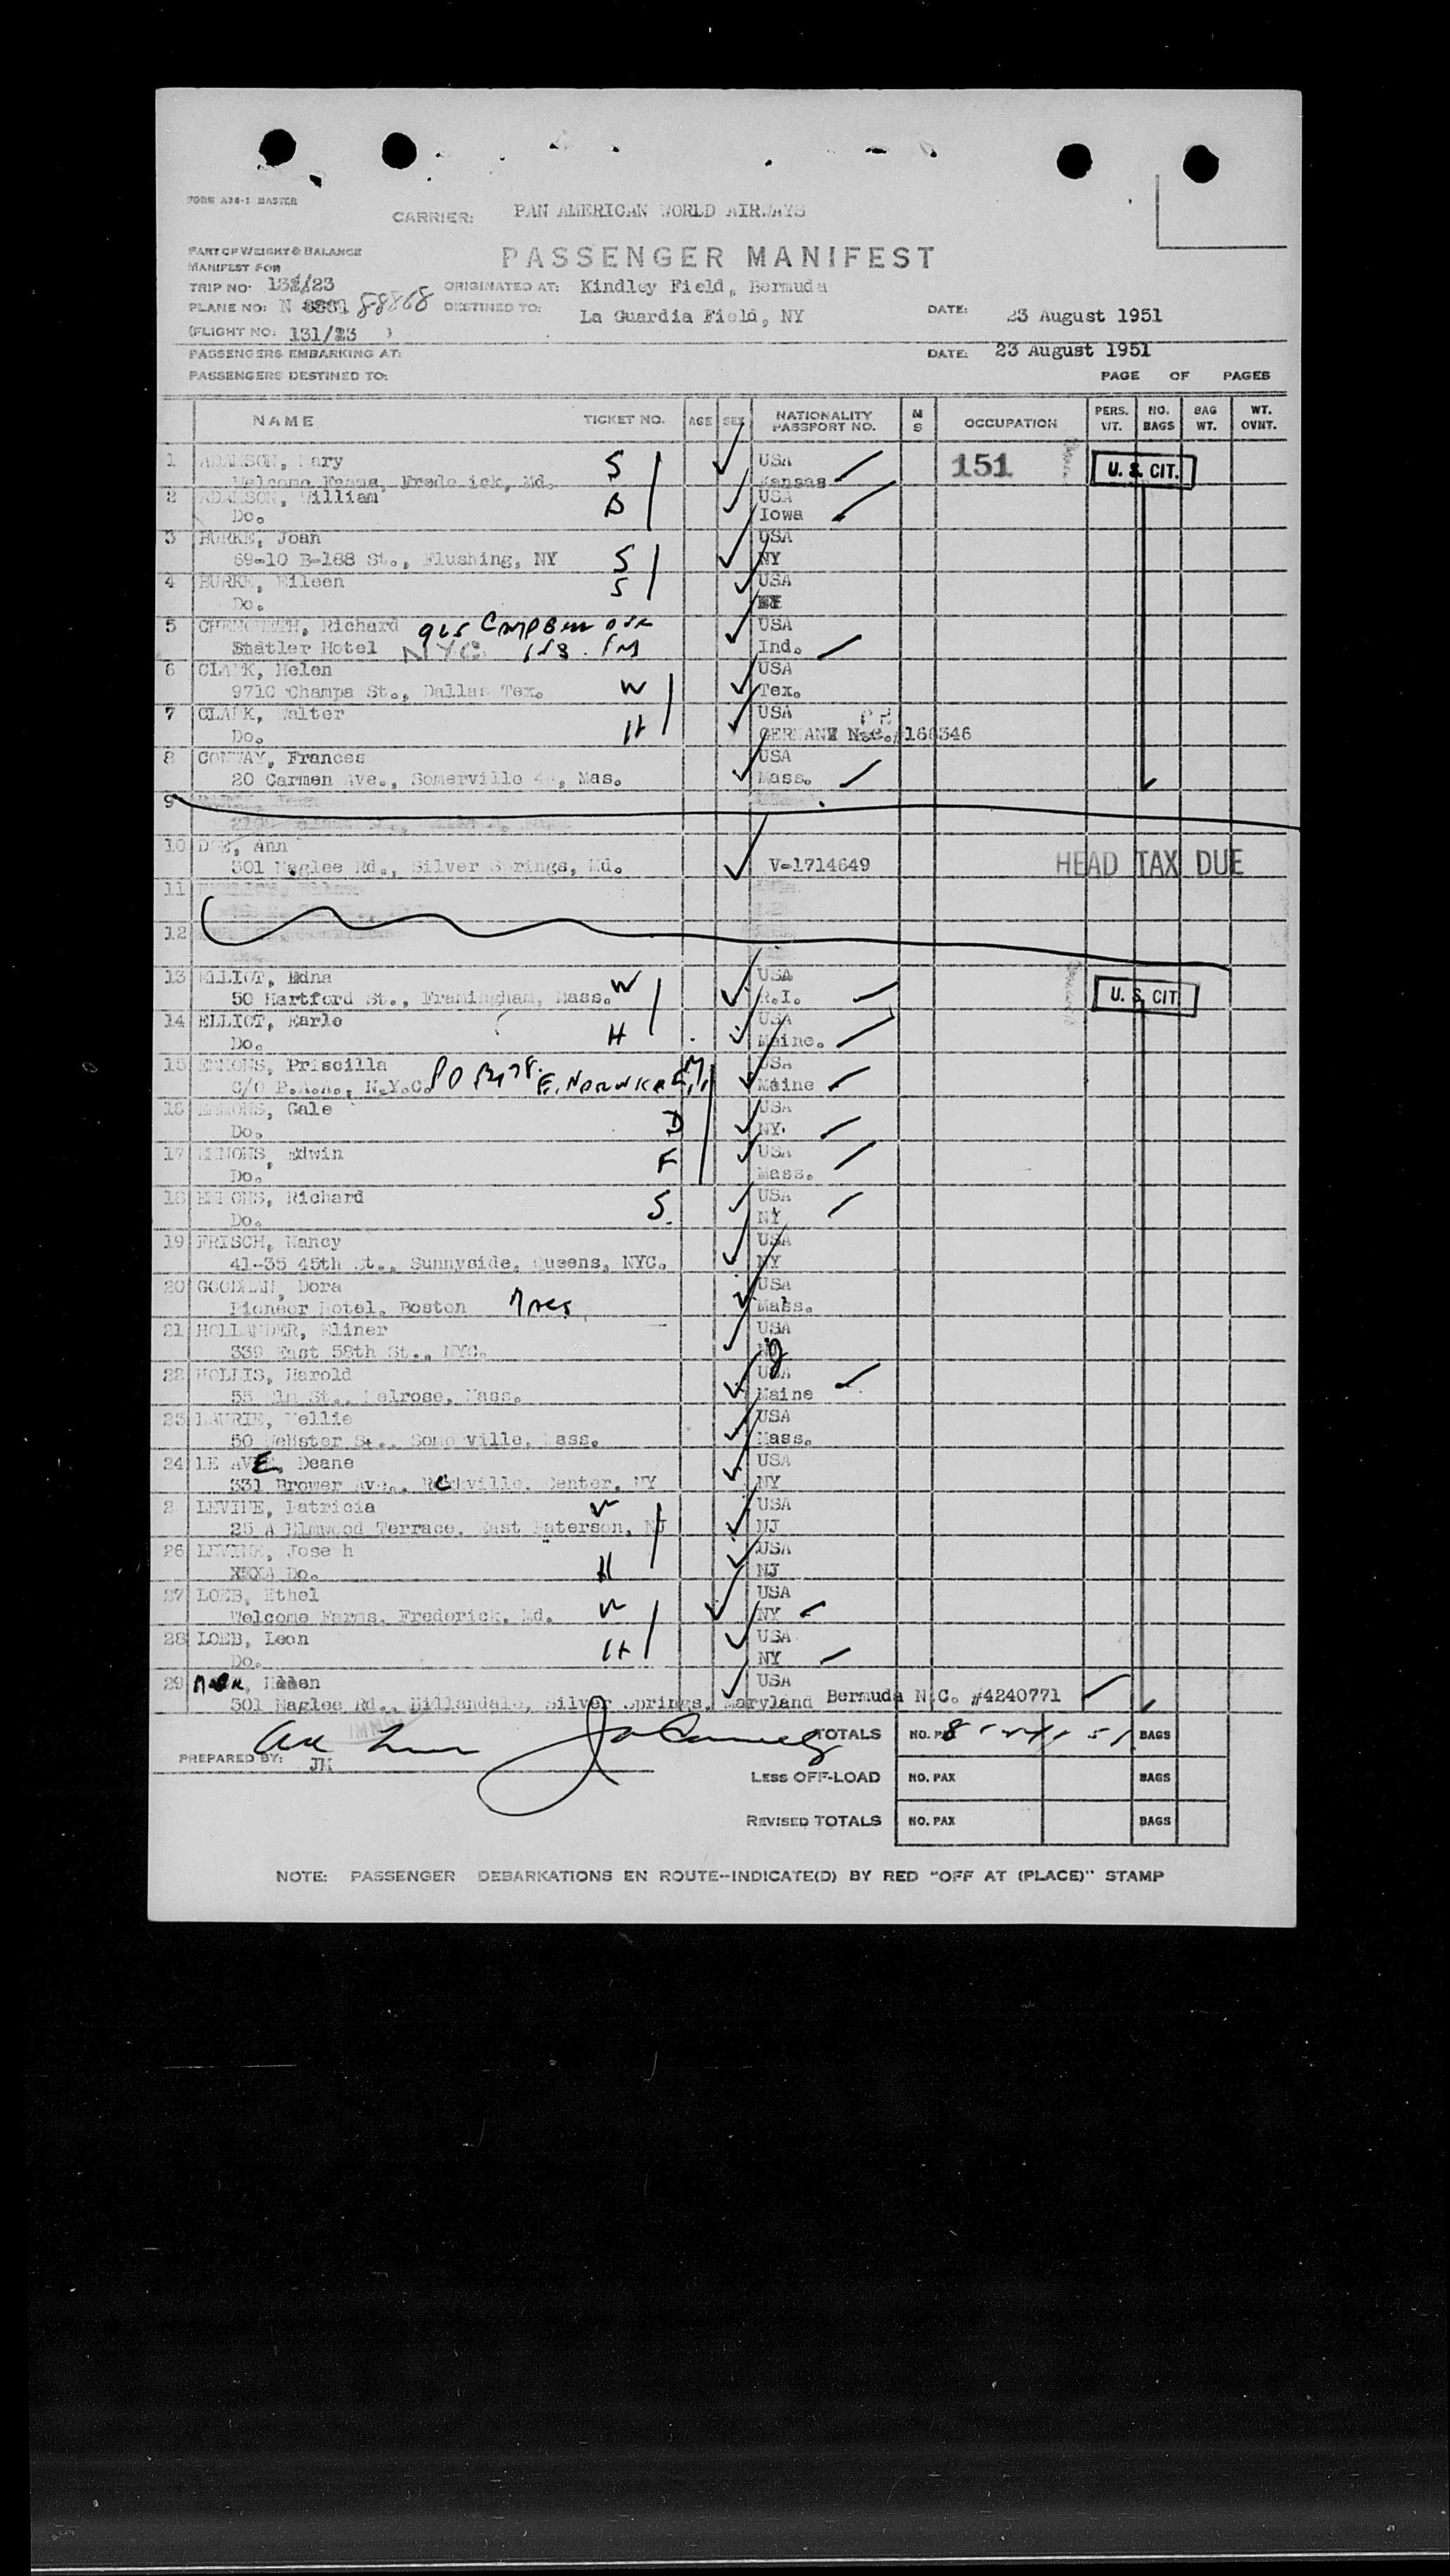 FORM A36-1 MASTER
CARRIER: PAN AMERICAN WORLD AIRWAYS
PART OF WEIGHT & BALANCE
MANIFEST FOR
PASSENGER MANIFEST
TRIP NO. 131/23 ORIGINATED AT: Kindley Field, Bermuda
PLANE NO: N 88868 DESTINED TO: La Guardia Field, NY DATE: 23 August 1951
(FLIGHT NO. 131/23 )
PASSENGERS EMBARKING AT: DATE: 23 August 1951
PASSENGERS DESTINED TO: PAGE OF PAGES
NAME TICKET NO. AGE SEX NATIONALITY PASSPORT NO. M S OCCUPATION PERS. WT. NO. BAGS BAG WT. WT. OVNT.
1 ADAMSON, Mary S USA 151 U. S. CIT.
Welcome Farms, Frederick, Md. Kansas
2 ADAMSON, William USA
Do. Iowa
3 BURKE, Joan USA
69-10 B-188 St., Flushing, NY S NY
4 BURKE, Eileen S USA
Do.
5 Richard USA
Statler Hotel NYC Ind.
6 CLARK, Helen USA
9710 Champa St., Dallas Tex. W Tex.
7 CLARK, Walter USA
Do. H GERMANY
8 CONWAY, Frances USA
20 Carmen Ave., Somerville Mas. Mass.
9
10 DOE, Ann
501 Naglee Rd., Silver Springs, Md. V-1714649 HEAD TAX DUE
11
12
13 ELLIOT, Edna W USA
50 Hartford St., Framingham, Mass. R.I. U. S. CIT
14 ELLIOT, Earle USA
Do. H Maine.
15 EMMONS, Priscilla USA
C/O P.A.A., N.Y.C. Maine
16 EMMONS, Gale D USA
Do. NY.
17 EMMONS, Edwin F USA
Do. Mass.
18 EMMONS, Richard S. USA
Do. NY
19 FRISCH, Nancy USA
41-35 45th St., Sunnyside, Queens, NYC. NY
20 GOODMAN, Dora USA
Pioneer Hotel, Boston Mass
Mass.
21 HOLLANDER, Eliner USA
339 East 58th St., NYC.
22 HOLLIS, Harold USA
55 Elm St., Melrose, Mass. Maine
23 LAURIE, Nellie USA
50 Webster St., Somerville, Mass. Mass.
24 LE AVE, Deane USA
331 Brower Ave., Rockville, Center, NY NY
2 LEVINE, Patricia USA
25 A Elmwood Terrace, East Paterson, NJ NJ
26 LEVINE, Jose h USA
Do. H NJ
27 LOEB, Ethel USA
Welcome Farms, Frederick, Md. NY
28 LOEB, Leon USA
Do. H NY
29 USA
501 Naglee Rd., Hillandale, Silver Springs, Maryland Bermuda N.C. #4240771
TOTALS NO. PAX BAGS
PREPARED BY: JM
LESS OFF-LOAD NO. PAX BAGS
REVISED TOTALS NO. PAX BAGS
NOTE: PASSENGER DEBARKATIONS EN ROUTE--INDICATE(D) BY RED "OFF AT (PLACE)" STAMP